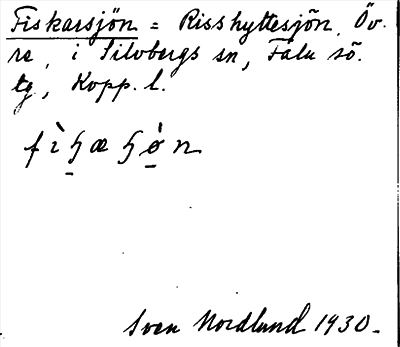 Fiskarsjön = Risshyttesjön, Öv.
re, i Silvbergs sn, Falu sö.
tg, Kopp. l.
fìɧæɧø̀n
Sven Nordlund 1930.